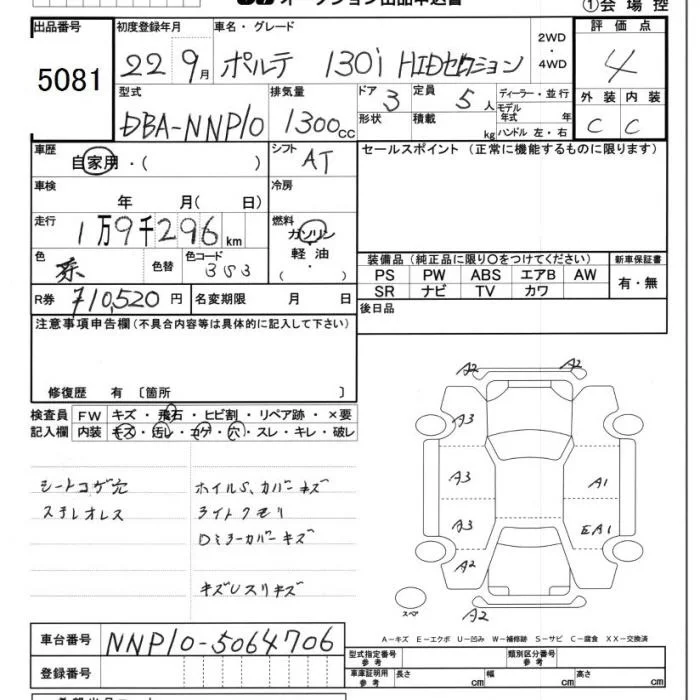 オークション出品申込書
①会場控
出品番号 初度登録年月 車名・グレード 2WD・4WD 評価点
5081 22 9月 ポルテ 130i HIDセレクション 4
型式 排気量 ドア 定員 ディーラー・並行 外装 内装
DBA-NNP10 1300cc 3 5人 モデル年式 年 C C
形状 積載 kg ハンドル 左・右
車歴 自家用・( ) シフト AT セールスポイント(正常に機能するものに限ります)
車検 年 月( 日) 冷房
走行 1万9千296km 燃料 ガソリン・軽油・( )
色 色替 色コード 3S3
装備品(純正品に限り○をつけてください) 新車保証書
PS PW ABS エアB AW 有・無
SR ナビ TV カワ
R券 710,520円 名変期限 月 日 後日品
注意事項申告欄(不具合内容等は具体的に記入して下さい)
修復歴 有〔箇所 〕
検査員 FW キズ・飛石・ヒビ割・リペア跡・×要
記入欄 内装 キズ・汚レ・コゲ・穴・スレ・キレ・破レ
シートコゲ穴 ホイルS、カバーキズ
ステレオレス ライトクモリ
Dミラーカバーキズ
キズUスリキズ
A2 A2
A3
A3 A1
A3 EA1
A2
スペ A2
A-キズ E-エクボ U-凹み W-補修跡 S-サビ C-腐食 XX-交換済
車台番号 NNP10-5064706
型式指定番号 参考 類別区分番号 参考
登録番号 車庫証明用 参考 長さ cm 幅 cm 高さ cm